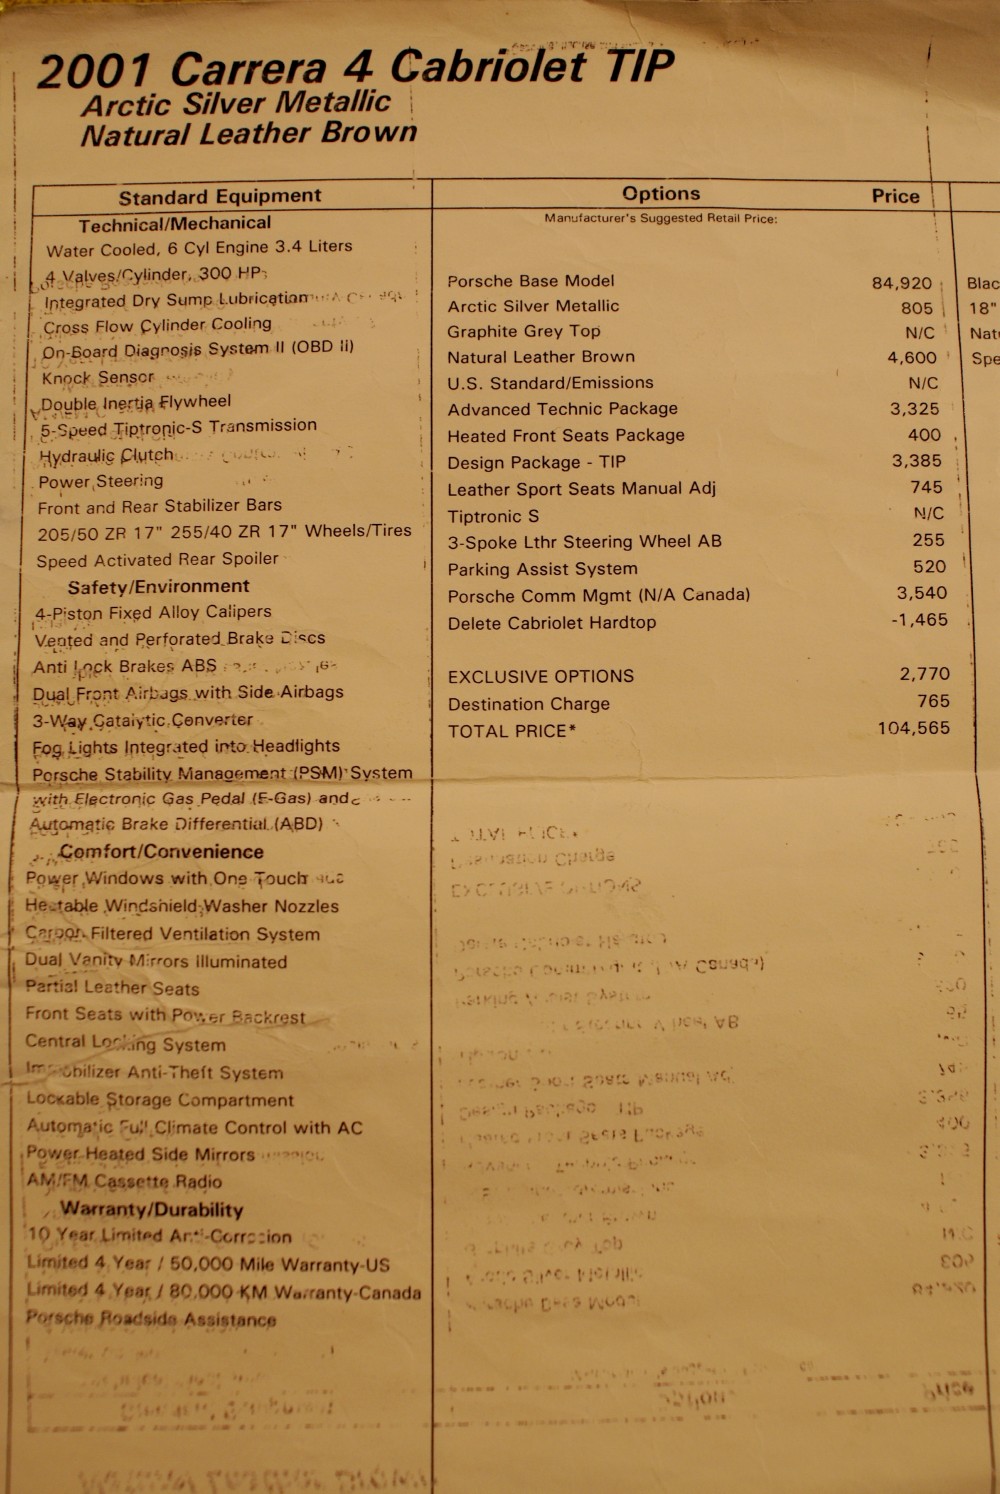 2001 Carrera 4 Cabriolet TIP
Arctic Silver Metallic
Natural Leather Brown
Standard Equipment
Technical/Mechanical
Water Cooled, 6 Cyl Engine 3.4 Liters
4 Valves/Cylinder, 300 HP
Integrated Dry Sump Lubrication
Cross Flow Cylinder Cooling
On-Board Diagnosis System II (OBD II)
Knock Sensor
Double Inertia Flywheel
5-Speed Tiptronic-S Transmission
Hydraulic Clutch
Power Steering
Front and Rear Stabilizer Bars
205/50 ZR 17" 255/40 ZR 17" Wheels/Tires
Speed Activated Rear Spoiler
Safety/Environment
4-Piston Fixed Alloy Calipers
Vented and Perforated Brake Discs
Anti Lock Brakes ABS
Dual Front Airbags with Side Airbags
3-Way Catalytic Converter
Fog Lights Integrated into Headlights
Porsche Stability Management (PSM) System
with Electronic Gas Pedal (E-Gas) and
Automatic Brake Differential (ABD)
Comfort/Convenience
Power Windows with One Touch
Heatable Windshield Washer Nozzles
Carbon Filtered Ventilation System
Dual Vanity Mirrors Illuminated
Partial Leather Seats
Front Seats with Power Backrest
Central Locking System
Immobilizer Anti-Theft System
Lockable Storage Compartment
Automatic Full Climate Control with AC
Power Heated Side Mirrors
AM/FM Cassette Radio
Warranty/Durability
10 Year Limited Anti-Corrosion
Limited 4 Year / 50,000 Mile Warranty-US
Limited 4 Year / 80,000 KM Warranty-Canada
Porsche Roadside Assistance
Options Price
Manufacturer's Suggested Retail Price:
Porsche Base Model 84,920
Arctic Silver Metallic 805
Graphite Grey Top N/C
Natural Leather Brown 4,600
U.S. Standard/Emissions N/C
Advanced Technic Package 3,325
Heated Front Seats Package 400
Design Package - TIP 3,385
Leather Sport Seats Manual Adj 745
Tiptronic S N/C
3-Spoke Lthr Steering Wheel AB 255
Parking Assist System 520
Porsche Comm Mgmt (N/A Canada) 3,540
Delete Cabriolet Hardtop -1,465
EXCLUSIVE OPTIONS 2,770
Destination Charge 765
TOTAL PRICE* 104,565
Blac
18"
Natu
Spe